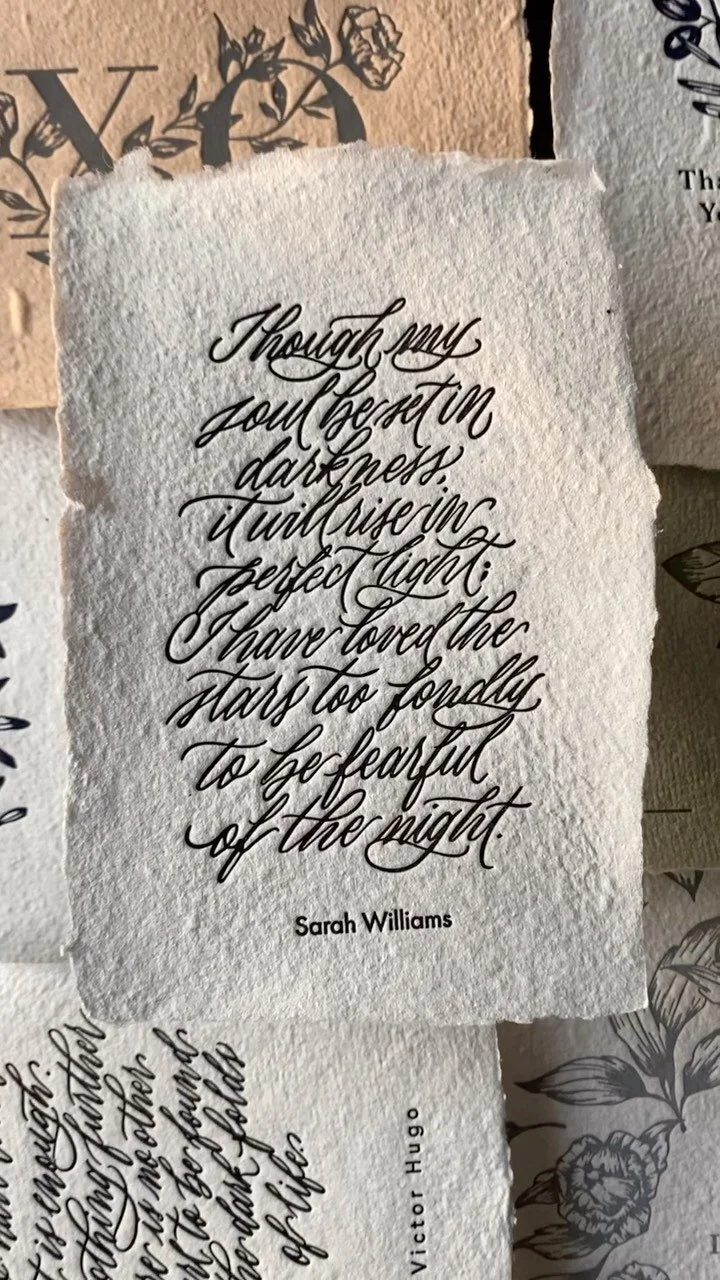 XO
Though my
soul be set in
darkness,
it will rise in
perfect light;
I have loved the
stars too fondly
to be fearful
of the night.
Sarah Williams
t is enough.
further
is no other
to be found
dark folds
of life.
Victor Hugo